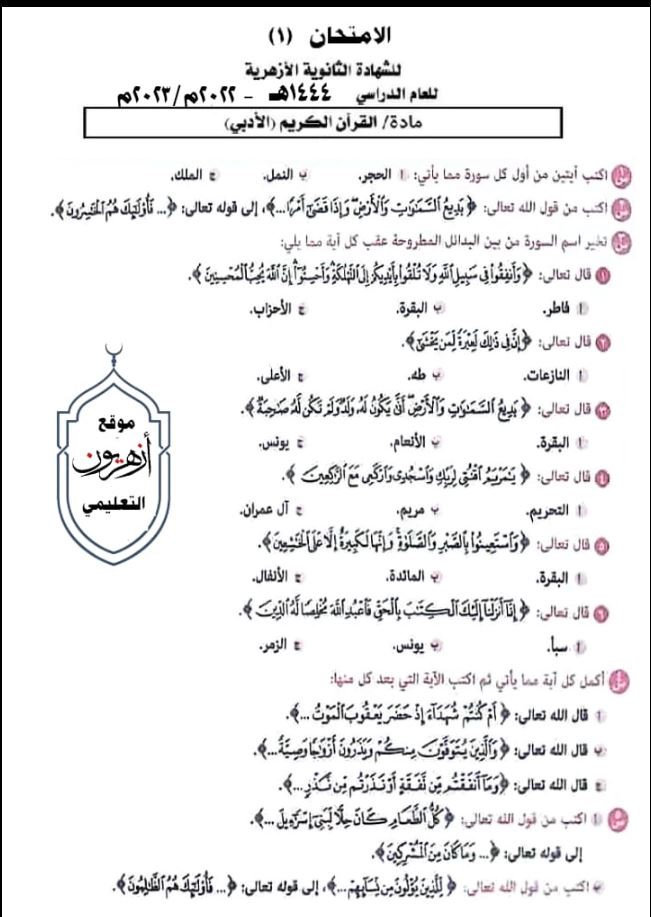 الامتحان (١)
للشهادة الثانوية الأزهرية
للعام الدراسي ١٤٤٤هـ - ٢٠٢٢م/٢٠٢٣م
مادة/ القرآن الكريم (الأدبي)
س١ اكتب آيتين من أول كل سورة مما يأتي: أ الحجر. ب النمل. ج الملك.
س٢ اكتب من قول الله تعالى: ﴿بَدِيعُ السَّمَٰوَٰتِ وَالْأَرْضِ وَإِذَا قَضَىٰٓ أَمْرًا...﴾، إلى قوله تعالى: ﴿... فَأُو۟لَٰٓئِكَ هُمُ الْخَٰسِرُونَ﴾.
س٣ تخير اسم السورة من بين البدائل المطروحة عقب كل آية مما يلي:
١ قال تعالى: ﴿وَأَنفِقُوا۟ فِى سَبِيلِ اللَّهِ وَلَا تُلْقُوا۟ بِأَيْدِيكُمْ إِلَى التَّهْلُكَةِ وَأَحْسِنُوٓا۟ إِنَّ اللَّهَ يُحِبُّ الْمُحْسِنِينَ﴾.
أ فاطر. ب البقرة. ج الأحزاب.
٢ قال تعالى: ﴿إِنَّ فِى ذَٰلِكَ لَعِبْرَةً لِّمَن يَخْشَىٰٓ﴾.
أ النازعات. ب طه. ج الأعلى.
٣ قال تعالى: ﴿بَدِيعُ السَّمَٰوَٰتِ وَالْأَرْضِ أَنَّىٰ يَكُونُ لَهُۥ وَلَدٌ وَلَمْ تَكُن لَّهُۥ صَٰحِبَةٌ﴾.
أ البقرة. ب الأنعام. ج يونس.
٤ قال تعالى: ﴿يَٰمَرْيَمُ اقْنُتِى لِرَبِّكِ وَاسْجُدِى وَارْكَعِى مَعَ الرَّٰكِعِينَ﴾.
أ التحريم. ب مريم. ج آل عمران.
٥ قال تعالى: ﴿وَاسْتَعِينُوا۟ بِالصَّبْرِ وَالصَّلَوٰةِ وَإِنَّهَا لَكَبِيرَةٌ إِلَّا عَلَى الْخَٰشِعِينَ﴾.
أ البقرة. ب المائدة. ج الأنفال.
٦ قال تعالى: ﴿إِنَّآ أَنزَلْنَآ إِلَيْكَ الْكِتَٰبَ بِالْحَقِّ فَاعْبُدِ اللَّهَ مُخْلِصًا لَّهُ الدِّينَ﴾.
أ سبأ. ب يونس. ج الزمر.
س٤ أكمل كل آية مما يأتي ثم اكتب الآية التي بعد كل منها:
أ قال الله تعالى: ﴿أَمْ كُنتُمْ شُهَدَآءَ إِذْ حَضَرَ يَعْقُوبَ الْمَوْتُ ...﴾.
ب قال الله تعالى: ﴿وَالَّذِينَ يُتَوَفَّوْنَ مِنكُمْ وَيَذَرُونَ أَزْوَٰجًا وَصِيَّةً...﴾.
ج قال الله تعالى: ﴿وَمَآ أَنفَقْتُم مِّن نَّفَقَةٍ أَوْ نَذَرْتُم مِّن نَّذْرٍ...﴾.
س٥ أ اكتب من قول الله تعالى: ﴿كُلُّ الطَّعَامِ كَانَ حِلًّا لِّبَنِىٓ إِسْرَٰٓءِيلَ ...﴾.
إلى قوله تعالى: ﴿... وَمَا كَانَ مِنَ الْمُشْرِكِينَ﴾.
ب اكتب من قول الله تعالى: ﴿لِّلَّذِينَ يُؤْلُونَ مِن نِّسَآئِهِمْ...﴾، إلى قوله تعالى: ﴿... فَأُو۟لَٰٓئِكَ هُمُ الظَّٰلِمُونَ﴾.
موقع
أزهريون
التعليمي